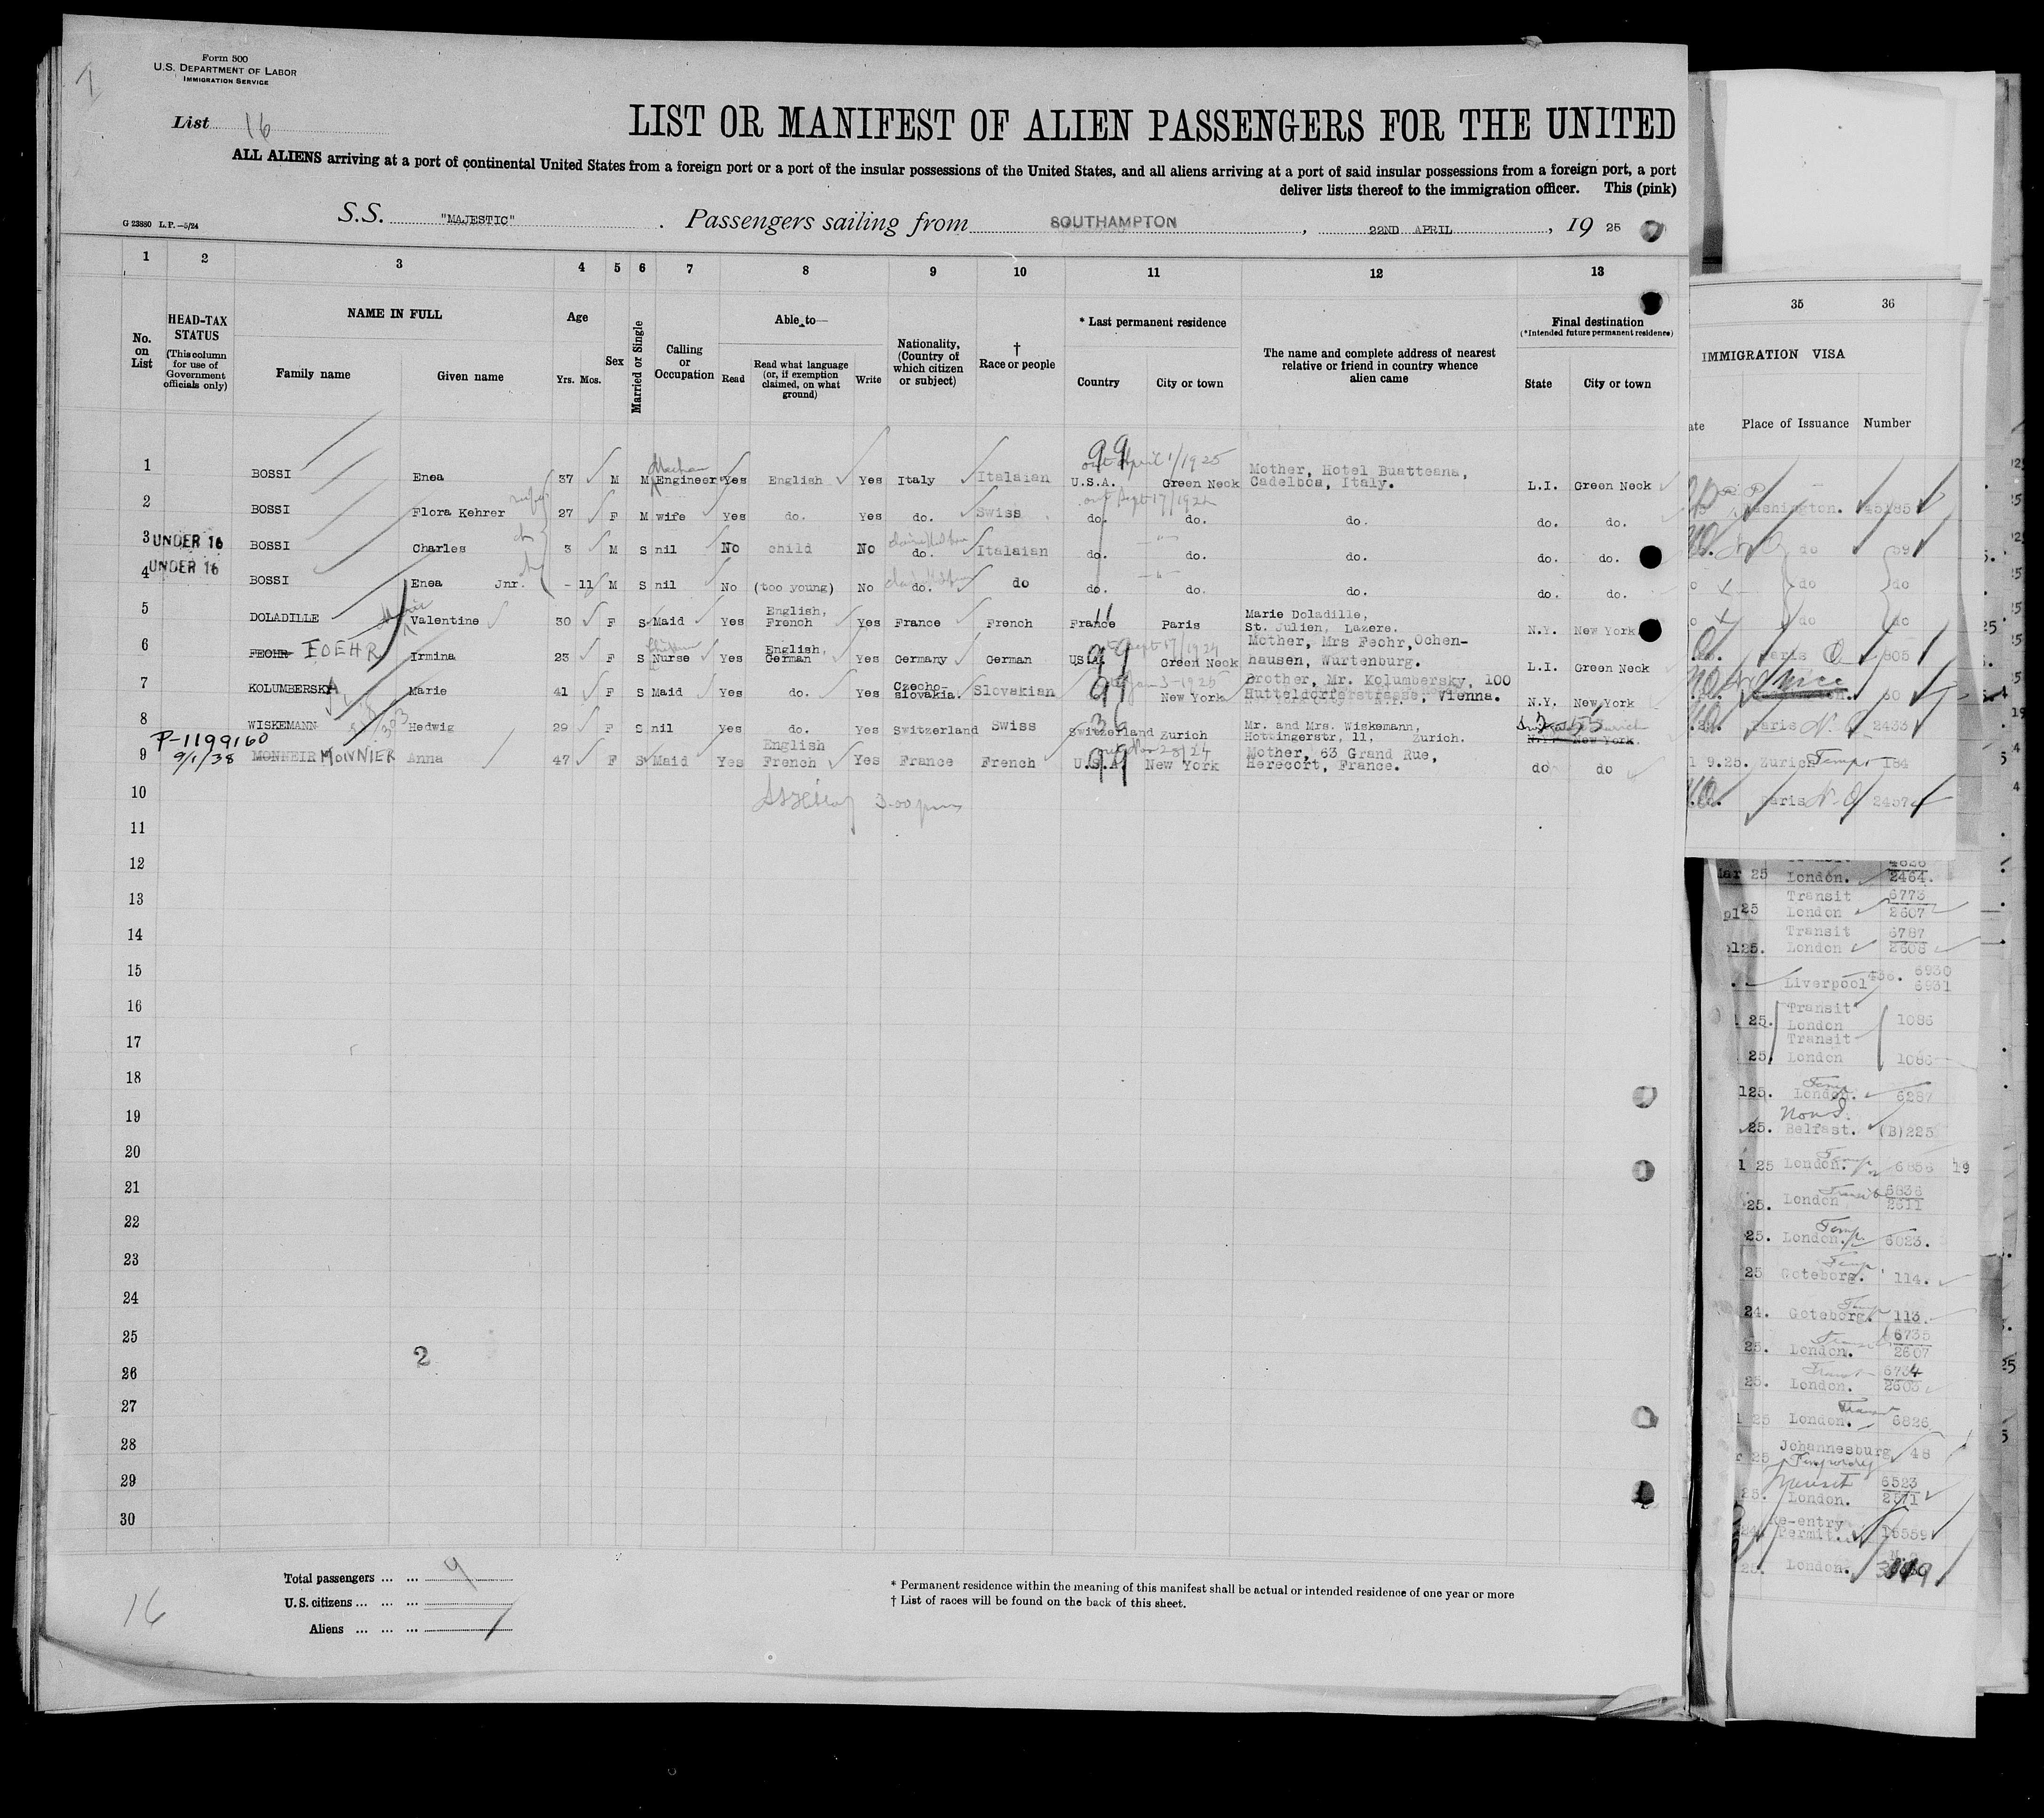 Form 500
U.S. DEPARTMENT OF LABOR
IMMIGRATION SERVICE
List 16
LIST OR MANIFEST OF ALIEN PASSENGERS FOR THE UNITED
ALL ALIENS arriving at a port of continental United States from a foreign port or a port of the insular possessions of the United States, and all aliens arriving at a port of said insular possessions from a foreign port, a port
deliver lists thereof to the immigration officer. This (pink)
G 23880 L.P.—5/24
S.S. "MAJESTIC" . Passengers sailing from SOUTHAMPTON , 22ND APRIL , 19 25
1 2 3 4 5 6 7 8 9 10 11 12 13
No. on List
HEAD-TAX STATUS
(This column for use of Government officials only)
NAME IN FULL
Family name
Given name
Age
Yrs. Mos.
Sex
Married or Single
Calling or Occupation
Able to—
Read
Read what language (or, if exemption claimed, on what ground)
Write
Nationality, (Country of which citizen or subject)
† Race or people
* Last permanent residence
Country
City or town
The name and complete address of nearest relative or friend in country whence alien came
Final destination
(*Intended future permanent residence)
State
City or town
out April 1/1925
1 BOSSI Enea 37 M M Engineer Yes English Yes Italy Italaian U.S.A. Green Neck Mother, Hotel Buatteana, Cadelboa, Italy. L.I. Green Neck
out Sept 17/1924
2 BOSSI Flora Kehrer wife 27 F M wife Yes do. Yes do. Swiss do. do. do. do. do.
3 UNDER 16 BOSSI Charles 3 M S nil No child No do. Italaian do. do. do. do. do.
4 UNDER 16 BOSSI Enea Jnr. - 11 M S nil No (too young) No do. do do. do. do. do. do.
5 DOLADILLE Marie Valentine 30 F S Maid Yes English, French Yes France French France Paris Marie Doladille, St. Julien, Lazere. N.Y. New York
6 FEOHR FOEHR Irmina 23 F S Nurse Yes English, German Yes Germany German USA Green Neck Mother, Mrs Feohr, Ochenhausen, Wurtenburg. L.I. Green Neck
7 KOLUMBERSKY A Marie 41 F S Maid Yes do. Yes Czecho-slovakia. Slovakian New York Brother, Mr. Kolumbersky, 100 Hutteldorferstrasse, Vienna. N.Y. New York
8 WISKEMANN Hedwig 29 F S nil Yes do. Yes Switzerland Swiss Switzerland Zurich Mr. and Mrs. Wiskemann, Hottingerstr, 11, Zurich. N.Y. New York.
P-1199160
9/1/38
9 MONNEIR MONNIER Anna 47 F S Maid Yes English French Yes France French U.S.A. New York Mother, 63 Grand Rue, Herecort, France. do do
10
3.00 pm
11
12
13
14
15
16
17
18
19
20
21
22
23
24
25
2
26
27
28
29
30
Total passengers ... ... 9
U.S. citizens ... ... ...
Aliens ... ... ...
16
* Permanent residence within the meaning of this manifest shall be actual or intended residence of one year or more
† List of races will be found on the back of this sheet.
35 36
IMMIGRATION VISA
Place of Issuance Number
do 59
do do
do do
Paris 605
Nice
Paris 2433
9.25. Zurich Temp 184
Paris 2457
Mar 25 London. 2464.
Transit 6773
London 2607
Transit 6787
London 2608
Liverpool 6930
6931
25. Transit London 1086
Transit
25. London 1086
Temp
London. 6287
25. Belfast. (B)225
25 London. 6856 19
Transit 6836
25. London 2611
Temp
25. London. 6023.
Temp
25 Goteborg. 114.
Temp
24. Goteborg. 113
6735
25. London. 2607
6734
25. London. 2603
25 London. 6826
Johannesburg 48
Temporary
6523
25. London. 2571
Re-entry
Permit. 15559
25. London.